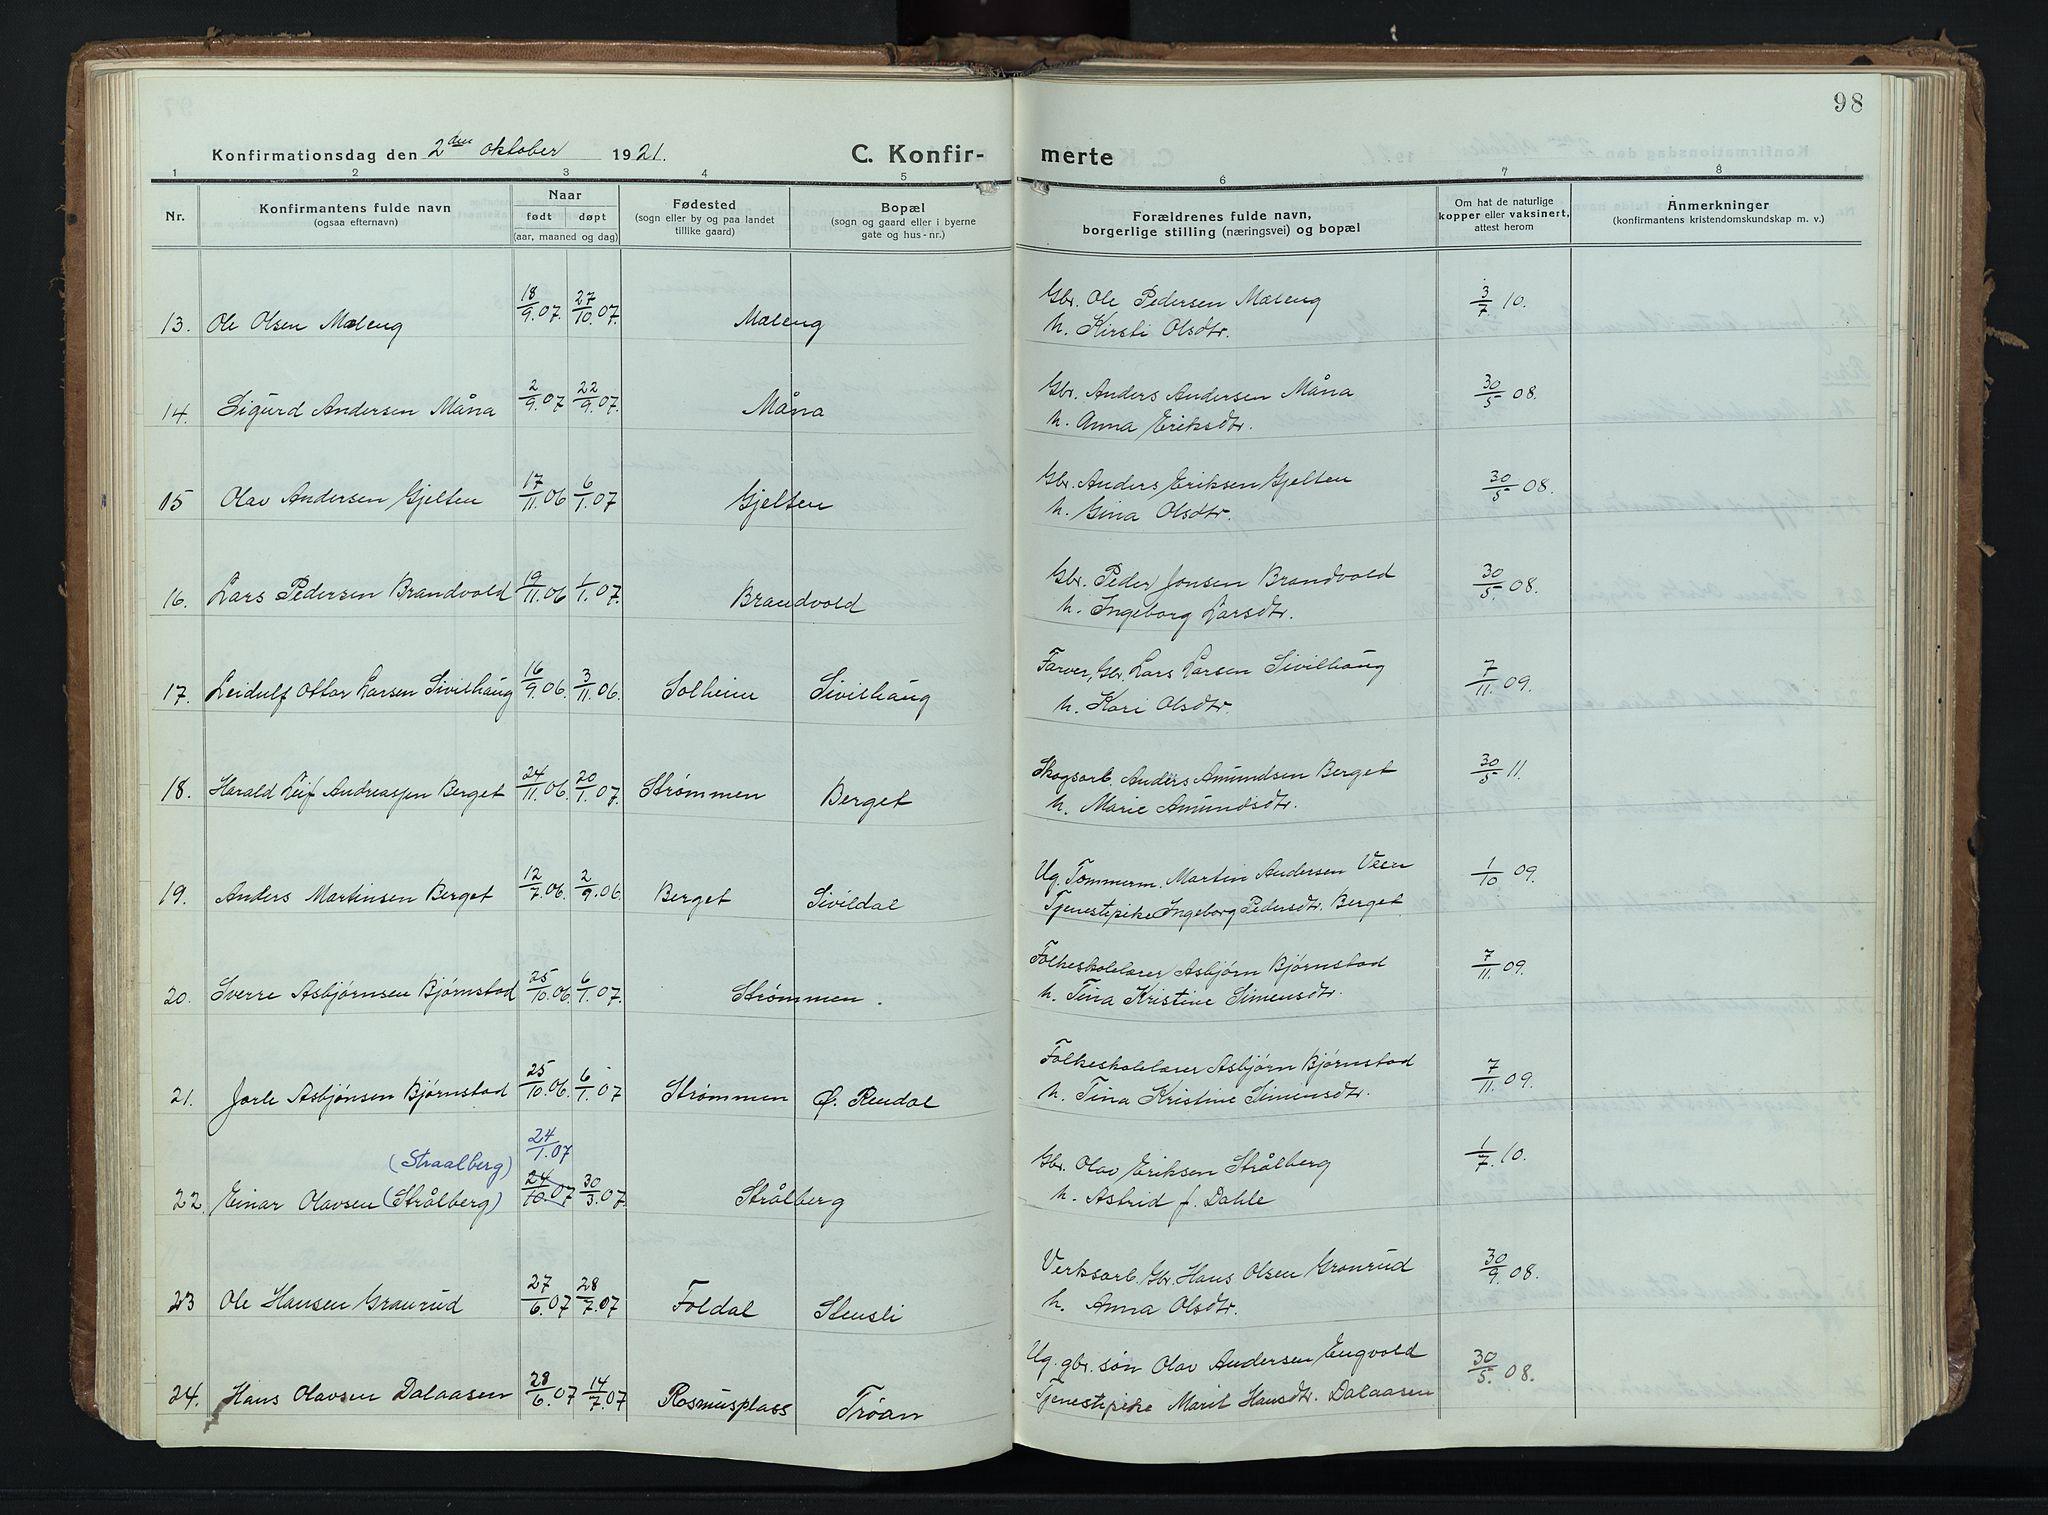 98
Konfirmationsdag den 2den oktober 1921.
C. Konfir- merte
1 2 3 4 5 6 7 8
Nr.
Konfirmantens fulde navn
(ogsaa efternavn)
Naar
født døpt
(aar, maaned og dag)
Fødested
(sogn eller by og paa landet
tillike gaard)
Bopæl
(sogn og gaard eller i byerne
gate og hus-nr.)
Forældrenes fulde navn,
borgerlige stilling (næringsvei) og bopæl
Om hat de naturlige
kopper eller vaksinert,
attest herom
Anmerkninger
(konfirmantens kristendomskundskap m. v.)
13. Ole Olsen Mæleng 18/9.07. 27/10.07. Mæleng Gbr. Ole Pedersen Mæleng 3/7 10.
h. Kirsti Olsdtr.
14. Sigurd Andersen Måna 2/9.07 22/9.07. Måna Gbr. Anders Andersen Måna 30/5 08.
h. Anna Eriksdtr.
15 Olav Andersen Gjelten 17/11.06 6/1.07 Gjelten Gbr. Anders Eriksen Gjelten 30/5 08.
h. Gina Olsdtr.
16. Lars Pedersen Brandvold 19/11.06 1/1.07. Brandvold Gbr. Peder Jonsen Brandvold 30/5. 08.
h. Ingeborg Larsdtr.
17. Leidulf Ottar Larsen Sivilhaug 16/9.06. 3/11.06. Solheim Sivilhaug Farver, Gbr. Lars Larsen Sivilhaug 7/11. 09.
h. Kari Olsdtr.
18. Harald Leif Andreassen Berget 24/11.06. 20/1.07. Strømmen Berget Skogsarb. Anders Amundsen Berget 30/5 11.
h. Marie Amundsdtr.
19. Anders Martinsen Berget 12/7.06. 2/9.06. Berget Sivildal Ug. Tømmerm. Martin Andersen Veen 1/10 09.
Tjenestepike Ingeborg Pedersdtr. Berget
20. Sverre Asbjørnsen Bjørnstad 25/10.06. 6/1.07. Strømmen. Folkeskolelærer Asbjørn Bjørnstad 7/11. 09.
h. Tina Kristine Simensdtr.
21. Jarle Asbjönsen Bjørnstad 25/10.06. 6/1.07 Strømmen Ø. Rendal Folkeskolelærer Asbjørn Bjørnstad 7/11. 09.
h. Tina Kristine Simensdtr.
(Straalberg) 24/1.07
22. Einar Olavsen (Strålberg) 24/10.07 30/3.07. Strålberg Gbr. Olav Eriksen Strålberg 1/7. 10.
h. Astrid f. Dahle
23 Ole Hansen Granrud 27/6.07 28/7.07 Foldal Stensli Verksarb. Gbr. Hans Olsen Granrud 30/9. 08.
h. Anna Olsdtr.
24. Hans Olavsen Dalaasen 28/6.07 14/7.07 Rasmusplass Trøan Ug. gbr. søn Olav Andersen Engvold 30/5. 08.
Tjenestepike Marit Hansdtr. Dalaasen